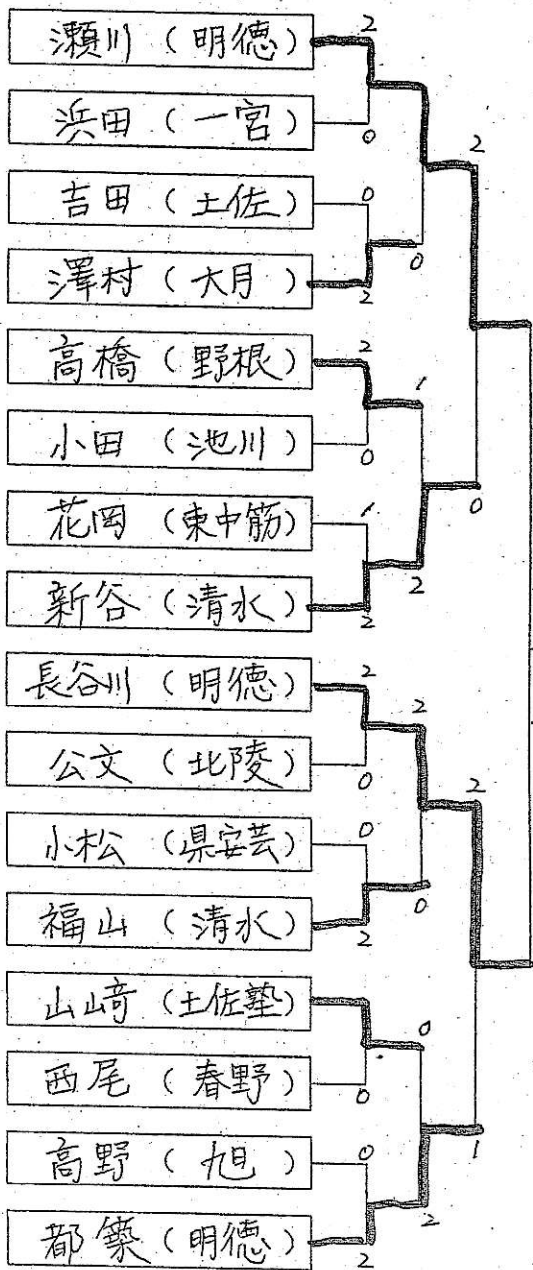 瀬川（明徳） 2
浜田（一宮） 0
2
吉田（土佐） 0
0
澤村（大月） 2
高橋（野根） 2
1
小田（池川） 0
0
花岡（東中筋） 1
2
新谷（清水） 2
長谷川（明徳） 2
2
公文（北陵） 0
2
小松（県安芸） 0
0
福山（清水） 2
山﨑（土佐塾）
0
西尾（春野） 0
高野（旭） 0
1
2
都築（明徳） 2